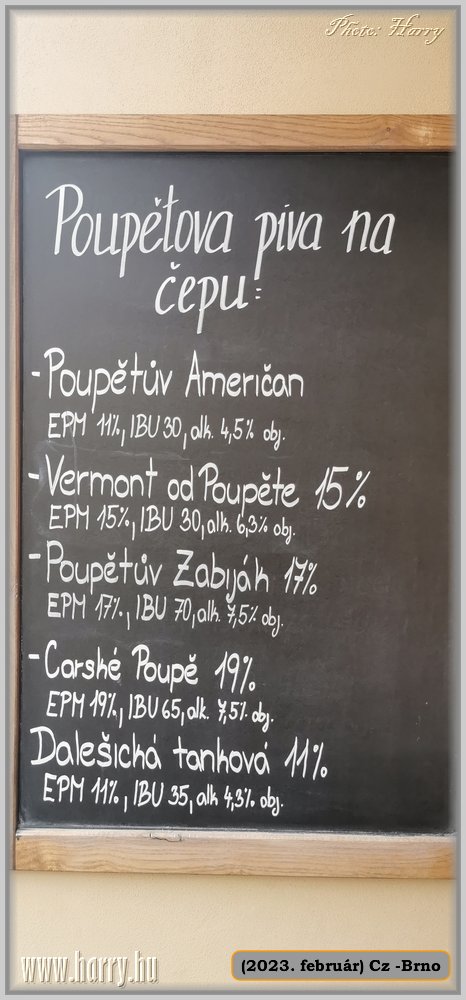 Photo: Harry
Poupětova piva na
čepu:
-Poupětův Američan
EPM 11%, IBU 30, alk. 4,5% obj.
-Vermont od Poupěte 15%
EPM 15%, IBU 30, alk. 6,3% obj.
-Poupětův Zabiják 17%
EPM 17%, IBU 70, alk. 7,5% obj.
-Carské Poupě 19%
EPM 19%, IBU 65, alk. 7,5% obj.
Dalešická tanková 11%
EPM 11%, IBU 35, alk 4,3% obj.
www.harry.hu
(2023. február) Cz -Brno